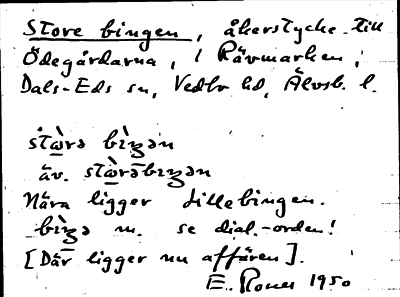 Store bingen, åkerstycke till
Ödegårdarna, i Rävmarken,
Dals-Eds sn, Vedbo hd, Älvsb. l.
stɷ̀rə bìŋən
äv. stɷ̀rəbiŋən
Nära ligger Lillebingen.
bìŋə m. se dial.-orden!
[Där ligger nu affären].
E. 1950